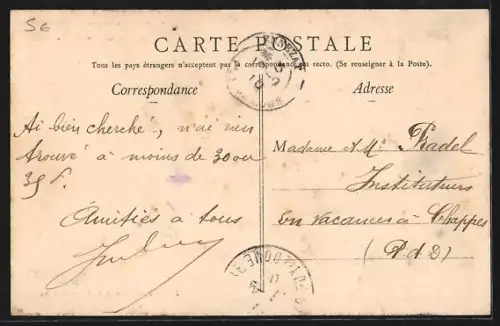 5€
CARTE POSTALE
Tous les pays étrangers n'acceptent pas la correspondance au recto. (Se renseigner à la Poste).
Correspondance
Ai bien cherché, n'ai rien
trouvé à moins de 30 ou
35 f.
Amitiés à tous
Adresse
Madame et Mr Badel
Instituteurs
en vacances à Chappes
(P. d. D)